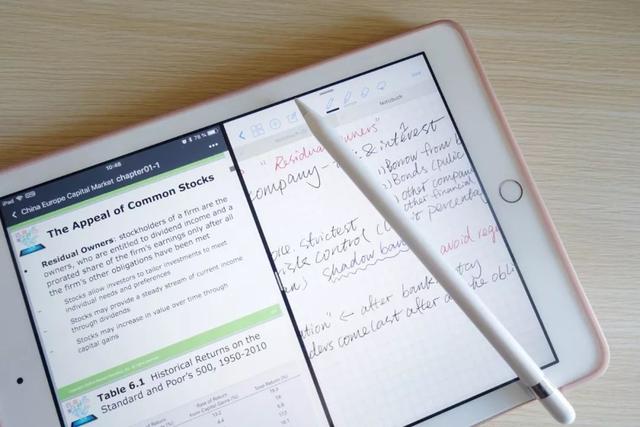 iPad
10:48
78 %
China Europe Capital Market chapter01-1
The Appeal of Common Stocks
Residual Owners: stockholders of a firm are the
owners, who are entitled to dividend income and a
prorated share of the firm's earnings only after all
the firm's other obligations have been met
Stocks allow investors to tailor investments to meet
individual needs and preferences
Stocks may provide a steady stream of current income
through dividends
Stocks may increase in value over time through
capital gains
Table 6.1 Historical Returns on the
Standard and Poor's 500, 1950-2010
Rate of Return
from Capital Gains (%)
Total Return (%)
Notebook
"Residual
company
& interest
Borrow from b
Bonds (public
other compan
other financial
percentag
strictest
risk control
shadow ban
avoid regu
← after bank
tcy
ders come last after a
the obli